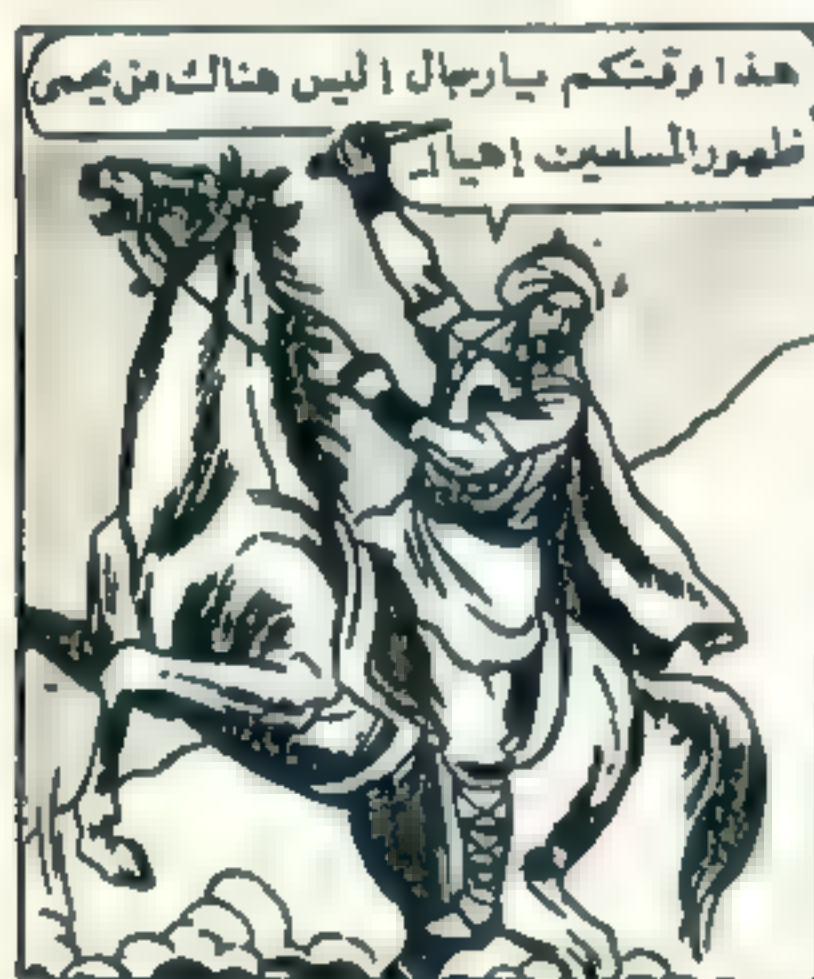 هذا وقتكم يارجال ! اليس هناك من يحمى
ظهور المسلمين ! هيا ..